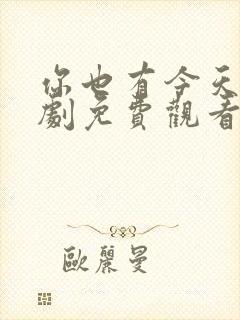 你也有今天
劇免費觀看
歐麗曼